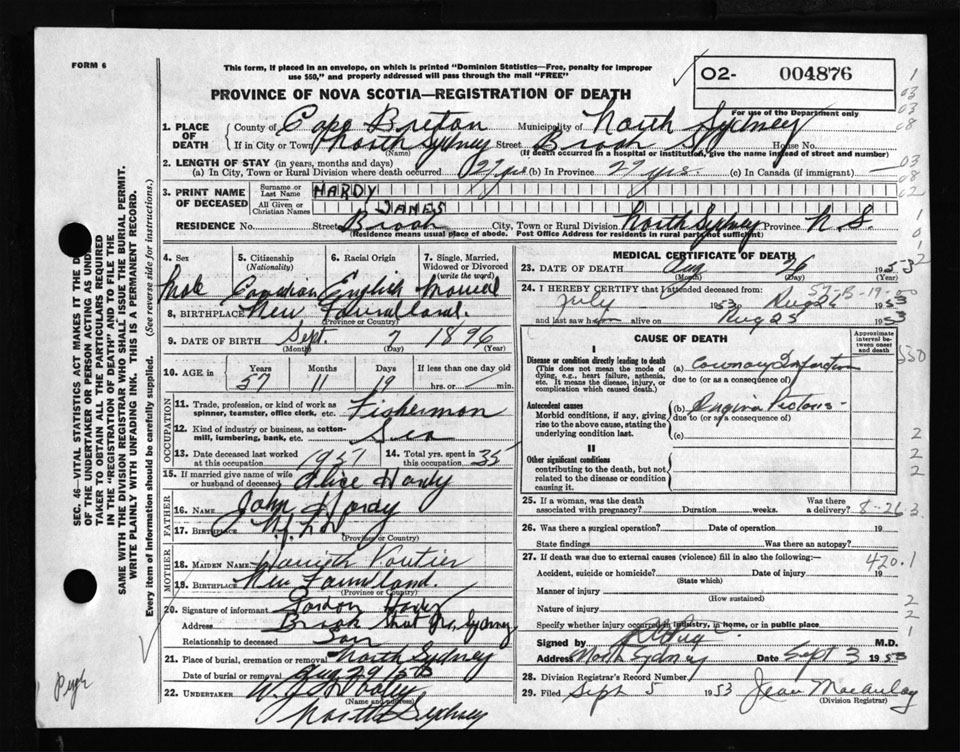 FORM 6
This form, if placed in an envelope, on which is printed "Dominion Statistics—Free, penalty for improper
use $50," and properly addressed will pass through the mail "FREE"
02- 004876
For use of the Department only
PROVINCE OF NOVA SCOTIA—REGISTRATION OF DEATH
1. PLACE OF DEATH
County of Cape Breton Municipality of North Sydney
If in City or Town North Sydney Street Brook St House No.
(Name) (If death occurred in a hospital or institution, give the name instead of street and number)
2. LENGTH OF STAY (in years, months and days)
(a) In City, Town or Rural Division where death occurred 27 yrs (b) In Province 27 yrs. (c) In Canada (if immigrant)
3. PRINT NAME OF DECEASED
Surname or Last Name HARDY
All Given or Christian Names JAMES
RESIDENCE No. Street Brook City, Town or Rural Division North Sydney Province N.S.
(Residence means usual place of abode. Post Office Address for residents in rural parts not sufficient)
4. Sex Male
5. Citizenship (Nationality) Canadian
6. Racial Origin English
7. Single, Married, Widowed or Divorced (write the word)
8. BIRTHPLACE New Foundland.
(Province or Country)
9. DATE OF BIRTH Sept. 7 1896
(Month) (Day) (Year)
10. AGE in Years 57 Months 11 Days 19 If less than one day old
hrs. or min.
OCCUPATION
11. Trade, profession, or kind of work as spinner, teamster, office clerk, etc. Fisherman
12. Kind of industry or business, as cotton-mill, lumbering, bank, etc. Sea
13. Date deceased last worked at this occupation 1951
14. Total yrs. spent in this occupation 35
15. If married give name of wife or husband of deceased Alice Hardy
FATHER
16. NAME John Hardy
17. BIRTHPLACE Nfld
(Province or Country)
MOTHER
18. MAIDEN NAME
19. BIRTHPLACE New Foundland.
(Province or Country)
20. Signature of informant Gordon Hardy
Address Brook Street No. Sydney
Relationship to deceased Son
21. Place of burial, cremation or removal North Sydney
Date of burial or removal Aug 29 1953
22. UNDERTAKER
(Name and address)
North Sydney
MEDICAL CERTIFICATE OF DEATH
23. DATE OF DEATH Aug 26 1953
(Month) (Day) (Year)
57-B-19-00
24. I HEREBY CERTIFY that I attended deceased from
July 1953 to Aug 26 1953
and last saw him alive on Aug 25 1953
CAUSE OF DEATH
Approximate interval between onset and death
I
Disease or condition directly leading to death
(This does not mean the mode of dying, e.g., heart failure, asthenia, etc. It means the disease, injury, or complication which caused death.)
(a) Coronary Infarction
due to (or as a consequence of)
Antecedent causes
Morbid conditions, if any, giving rise to the above cause, stating the underlying condition last.
(b) Angina Pectoris
due to (or as a consequence of)
(c)
II
Other significant conditions
contributing to the death, but not related to the disease or condition causing it.
25. If a woman, was the death associated with pregnancy? Duration weeks. Was there a delivery? 8-26
26. Was there a surgical operation? Date of operation 19
State findings Was there an autopsy?
27. If death was due to external causes (violence) fill in also the following:—
420.1
Accident, suicide or homicide? Date of injury 19
(State which)
Manner of injury
(How sustained)
Nature of injury
Specify whether injury occurred in industry, in home, or in public place
Signed by M.D.
Address North Sydney Date Sept 3 1953
28. Division Registrar's Record Number
29. Filed Sept 5 1953 Jean Macaulay
(Division Registrar)
SEC. 46—VITAL STATISTICS ACT MAKES IT THE D
OF THE UNDERTAKER OR PERSON ACTING AS UND
TAKER TO OBTAIN ALL THE PARTICULARS REQUIRED
IN THE "REGISTRATION OF DEATH" AND TO FILE THE
SAME WITH THE DIVISION REGISTRAR WHO SHALL ISSUE THE BURIAL PERMIT.
WRITE PLAINLY WITH UNFADING INK. THIS IS A PERMANENT RECORD.
Every item of information should be carefully supplied. (See reverse side for instructions.)